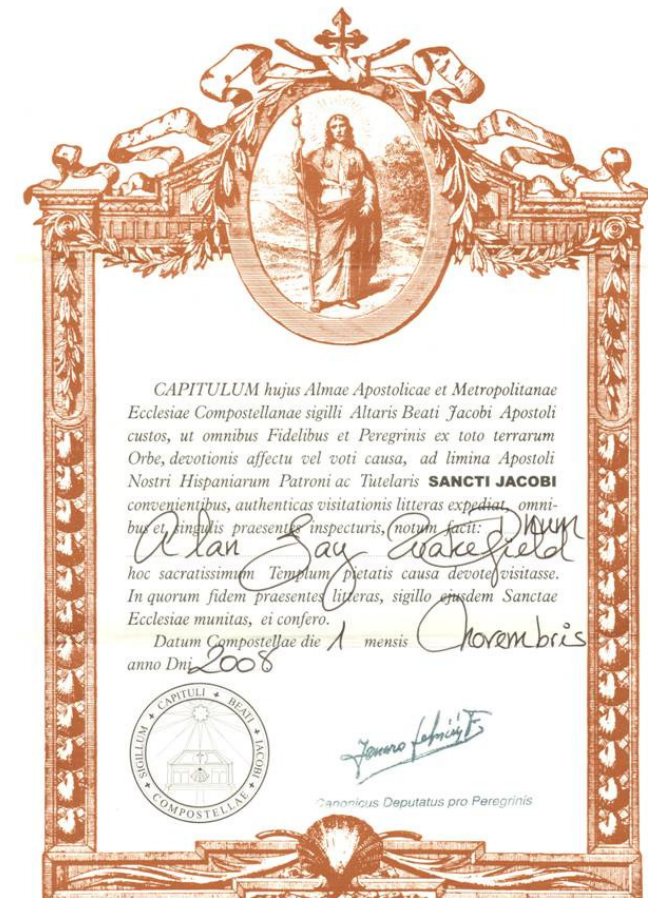 CAPITULUM hujus Almae Apostolicae et Metropolitanae
Ecclesiae Compostellanae sigilli Altaris Beati Jacobi Apostoli
custos, ut omnibus Fidelibus et Peregrinis ex toto terrarum
Orbe, devotionis affectu vel voti causa, ad limina Apostoli
Nostri Hispaniarum Patroni ac Tutelaris SANCTI JACOBI
convenientibus, authenticas visitationis litteras expediat, omni-
bus et singulis praesentes inspecturis, notum facit: Dnum
Alan Jay Wakefield
hoc sacratissimum Templum pietatis causa devote visitasse.
In quorum fidem praesentes litteras, sigillo ejusdem Sanctae
Ecclesiae munitas, ei confero.
Datum Compostellae die 1 mensis Novembris
anno Dni 2008
SIGILLUM + CAPITULI + BEATI + IACOBI + COMPOSTELLAE +
Canonicus Deputatus pro Peregrinis